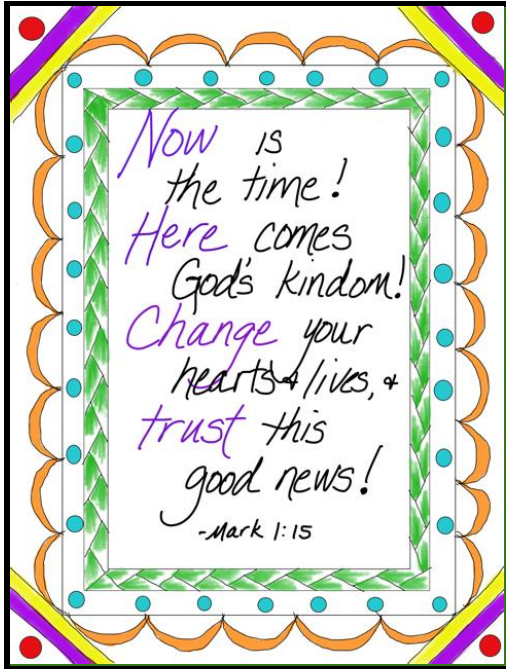 Now is
the time!
Here comes
God's kindom!
Change your
hearts & lives, &
trust this
good news!
-Mark 1:15